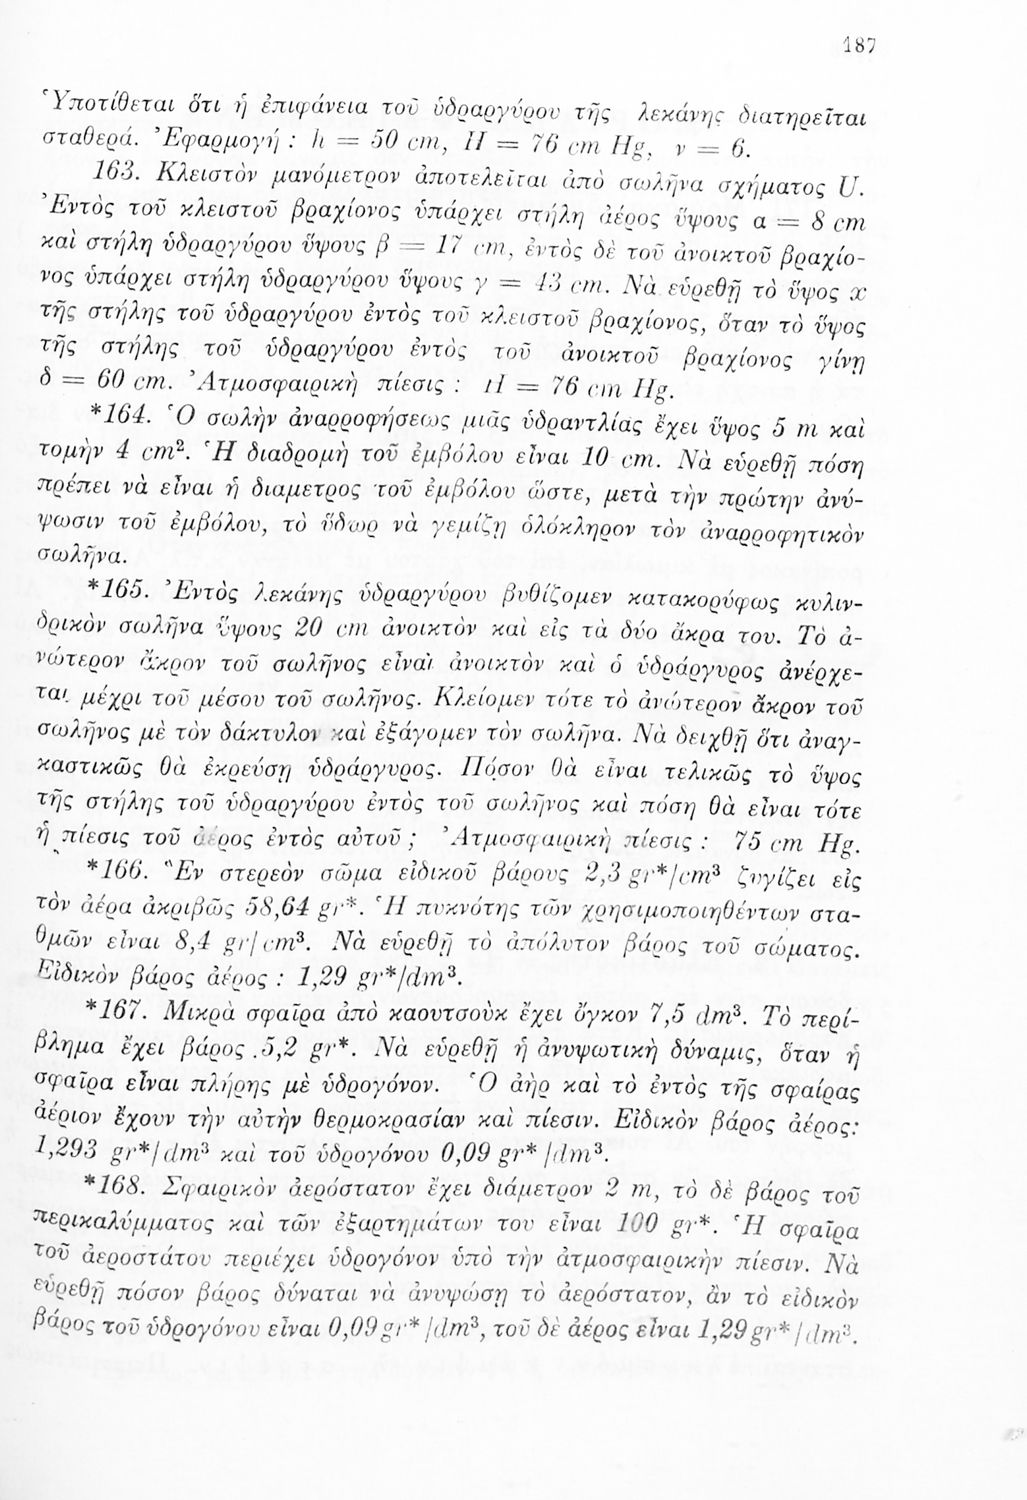 187
Ὑποτίθεται ὅτι ἡ ἐπιφάνεια τοῦ ὑδραργύρου τῆς λεκάνης διατηρεῖται
σταθερά. Ἐφαρμογή : h = 50 cm, H = 76 cm Hg, ν = 6.
163. Κλειστὸν μανόμετρον ἀποτελεῖται ἀπὸ σωλῆνα σχήματος U.
Ἐντὸς τοῦ κλειστοῦ βραχίονος ὑπάρχει στήλη ἀέρος ὕψους α = 8 cm
καὶ στήλη ὑδραργύρου ὕψους β = 17 cm, ἐντὸς δὲ τοῦ ἀνοικτοῦ βραχίο-
νος ὑπάρχει στήλη ὑδραργύρου ὕψους γ = 43 cm. Νὰ εὑρεθῇ τὸ ὕψος x
τῆς στήλης τοῦ ὑδραργύρου ἐντὸς τοῦ κλειστοῦ βραχίονος, ὅταν τὸ ὕψος
τῆς στήλης τοῦ ὑδραργύρου ἐντὸς τοῦ ἀνοικτοῦ βραχίονος γίνῃ
δ = 60 cm. Ἀτμοσφαιρικὴ πίεσις : H = 76 cm Hg.
*164. Ὁ σωλὴν ἀναρροφήσεως μιᾶς ὑδραντλίας ἔχει ὕψος 5 m καὶ
τομὴν 4 cm². Ἡ διαδρομὴ τοῦ ἐμβόλου εἶναι 10 cm. Νὰ εὑρεθῇ πόση
πρέπει νὰ εἶναι ἡ διαμετρος τοῦ ἐμβόλου ὥστε, μετὰ τὴν πρώτην ἀνύ-
ψωσιν τοῦ ἐμβόλου, τὸ ὕδωρ νὰ γεμίζῃ ὁλόκληρον τὸν ἀναρροφητικὸν
σωλῆνα.
*165. Ἐντὸς λεκάνης ὑδραργύρου βυθίζομεν κατακορύφως κυλιν-
δρικὸν σωλῆνα ὕψους 20 cm ἀνοικτὸν καὶ εἰς τὰ δύο ἄκρα του. Τὸ ἀ-
νώτερον ἄκρον τοῦ σωλῆνος εἶναι ἀνοικτὸν καὶ ὁ ὑδράργυρος ἀνέρχε-
ται μέχρι τοῦ μέσου τοῦ σωλῆνος. Κλείομεν τότε τὸ ἀνώτερον ἄκρον τοῦ
σωλῆνος μὲ τὸν δάκτυλον καὶ ἐξάγομεν τὸν σωλῆνα. Νὰ δειχθῇ ὅτι ἀναγ-
καστικῶς θὰ ἐκρεύσῃ ὑδράργυρος. Πόσον θὰ εἶναι τελικῶς τὸ ὕψος
τῆς στήλης τοῦ ὑδραργύρου ἐντὸς τοῦ σωλῆνος καὶ πόση θὰ εἶναι τότε
ἡ πίεσις τοῦ ἀέρος ἐντὸς αὐτοῦ ; Ἀτμοσφαιρικὴ πίεσις : 75 cm Hg.
*166. Ἓν στερεὸν σῶμα εἰδικοῦ βάρους 2,3 gr*/cm³ ζυγίζει εἰς
τὸν ἀέρα ἀκριβῶς 58,64 gr*. Ἡ πυκνότης τῶν χρησιμοποιηθέντων στα-
θμῶν εἶναι 8,4 gr/cm³. Νὰ εὑρεθῇ τὸ ἀπόλυτον βάρος τοῦ σώματος.
Εἰδικὸν βάρος ἀέρος : 1,29 gr*/dm³.
*167. Μικρὰ σφαῖρα ἀπὸ καουτσοὺκ ἔχει ὄγκον 7,5 dm³. Τὸ περί-
βλημα ἔχει βάρος 5,2 gr*. Νὰ εὑρεθῇ ἡ ἀνυψωτικὴ δύναμις, ὅταν ἡ
σφαῖρα εἶναι πλήρης μὲ ὑδρογόνον. Ὁ ἀὴρ καὶ τὸ ἐντὸς τῆς σφαίρας
ἀέριον ἔχουν τὴν αὐτὴν θερμοκρασίαν καὶ πίεσιν. Εἰδικὸν βάρος ἀέρος:
1,293 gr*/dm³ καὶ τοῦ ὑδρογόνου 0,09 gr* /dm³.
*168. Σφαιρικὸν ἀερόστατον ἔχει διάμετρον 2 m, τὸ δὲ βάρος τοῦ
περικαλύμματος καὶ τῶν ἐξαρτημάτων του εἶναι 100 gr*. Ἡ σφαῖρα
τοῦ ἀεροστάτου περιέχει ὑδρογόνον ὑπὸ τὴν ἀτμοσφαιρικὴν πίεσιν. Νὰ
εὑρεθῇ πόσον βάρος δύναται νὰ ἀνυψώσῃ τὸ ἀερόστατον, ἂν τὸ εἰδικὸν
βάρος τοῦ ὑδρογόνου εἶναι 0,09 gr* /dm³, τοῦ δὲ ἀέρος εἶναι 1,29 gr* /dm³.